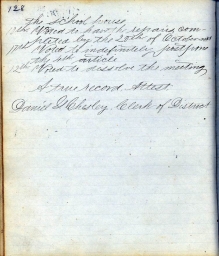 128
the school house
10th Voted to have the repairs com-
pleted by the 20th of October
11th Voted to indefinitely postpone
the 11th article
12th Voted to dissolve the meeting
A true record Attest
Daniel Chesley Clerk of District